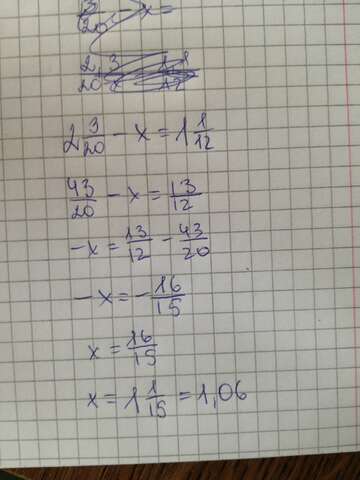 3/20 - x =
2 3/20 - x = 1 1/12
43/20 - x = 13/12
-x = 13/12 - 43/20
-x = -16/15
x = 16/15
x = 1 1/15 = 1,06